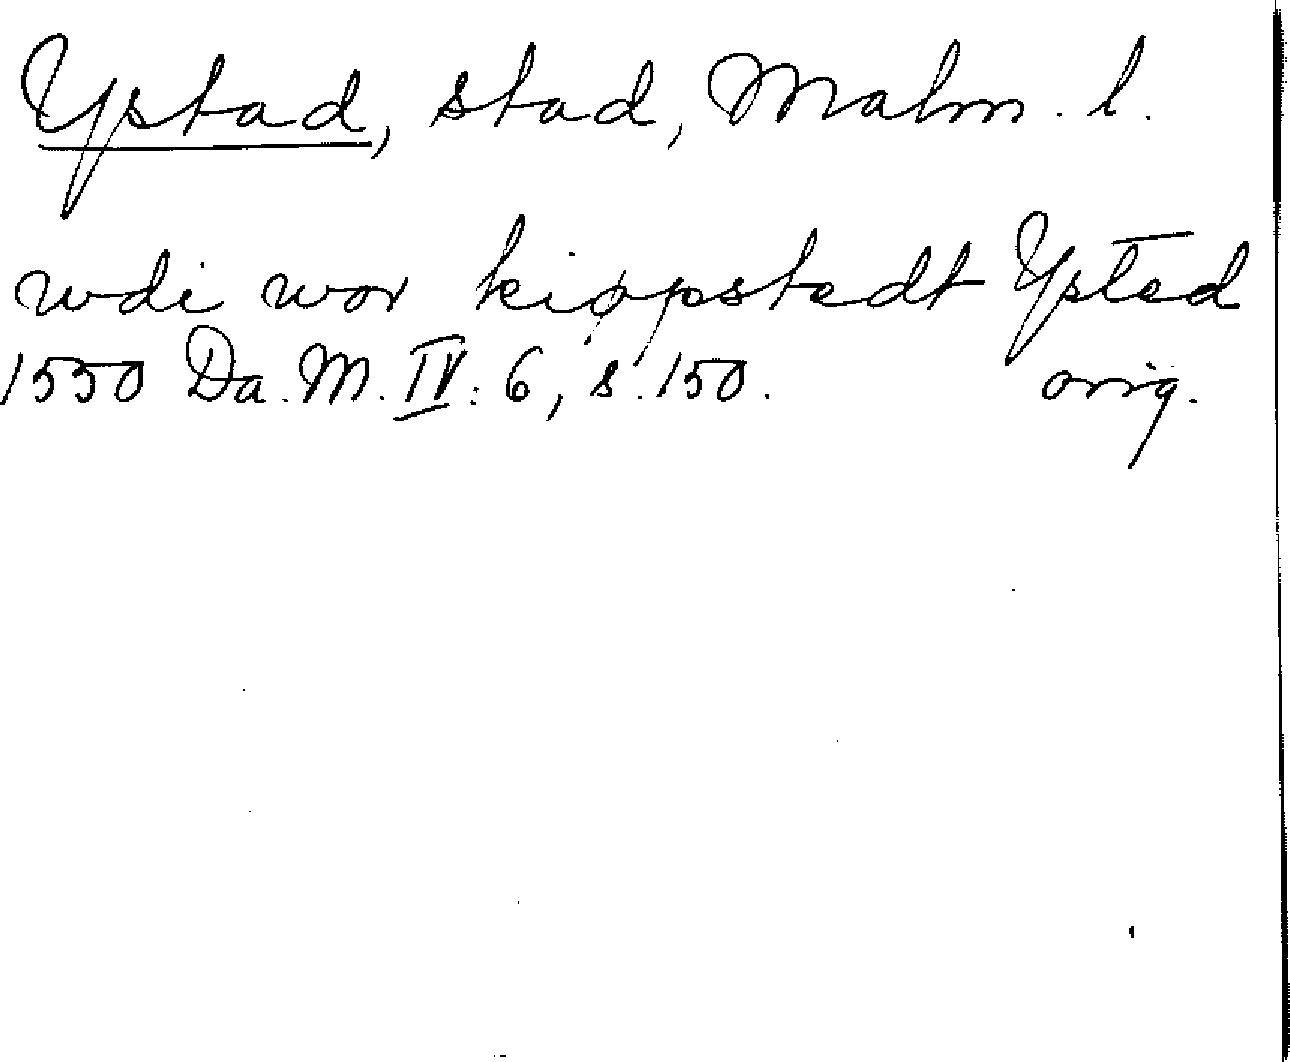 Ystad, stad, Malm. l.
wdi wor kiøpstedt Ysted
1550 Da. M. IV: 6, s. 150. orig.